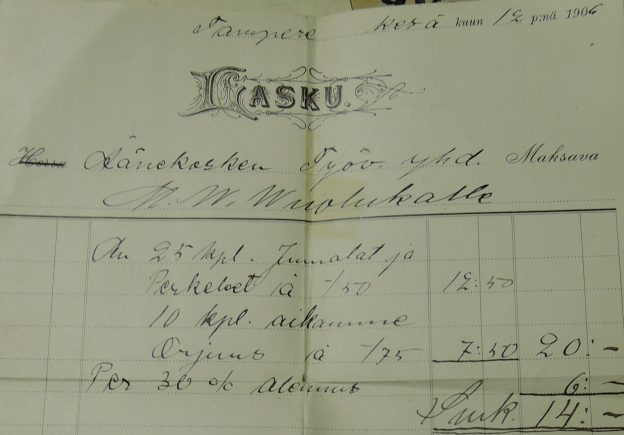 Tampere kesä kuun 12 p:nä 1906
LASKU.
Herra Äänekosken Työv. yhd. Maksava
W. Wuolukalle
An 25 kpl. Jumalat ja
Perkeleet à -/50 12:50
10 kpl. aikamme
Orjuus à -/75 7:50 20:-
Per 30 % alennus 6:-
Smk. 14:-